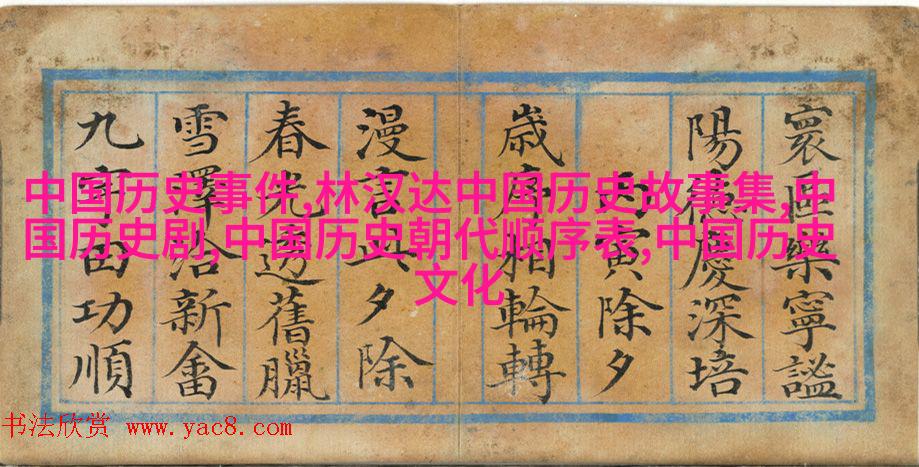 中国历史事件,林汉达中国历史故事集,中
国历史剧,中国历史朝代顺序表,中国历史
文化
寰樂寧謐
陽慶深培
丙寅除夕
歲序輪轉
漫言夕除
春光舊臘
雪澤洽新畬
九宇田功順
书法欣赏 www.yac8.com